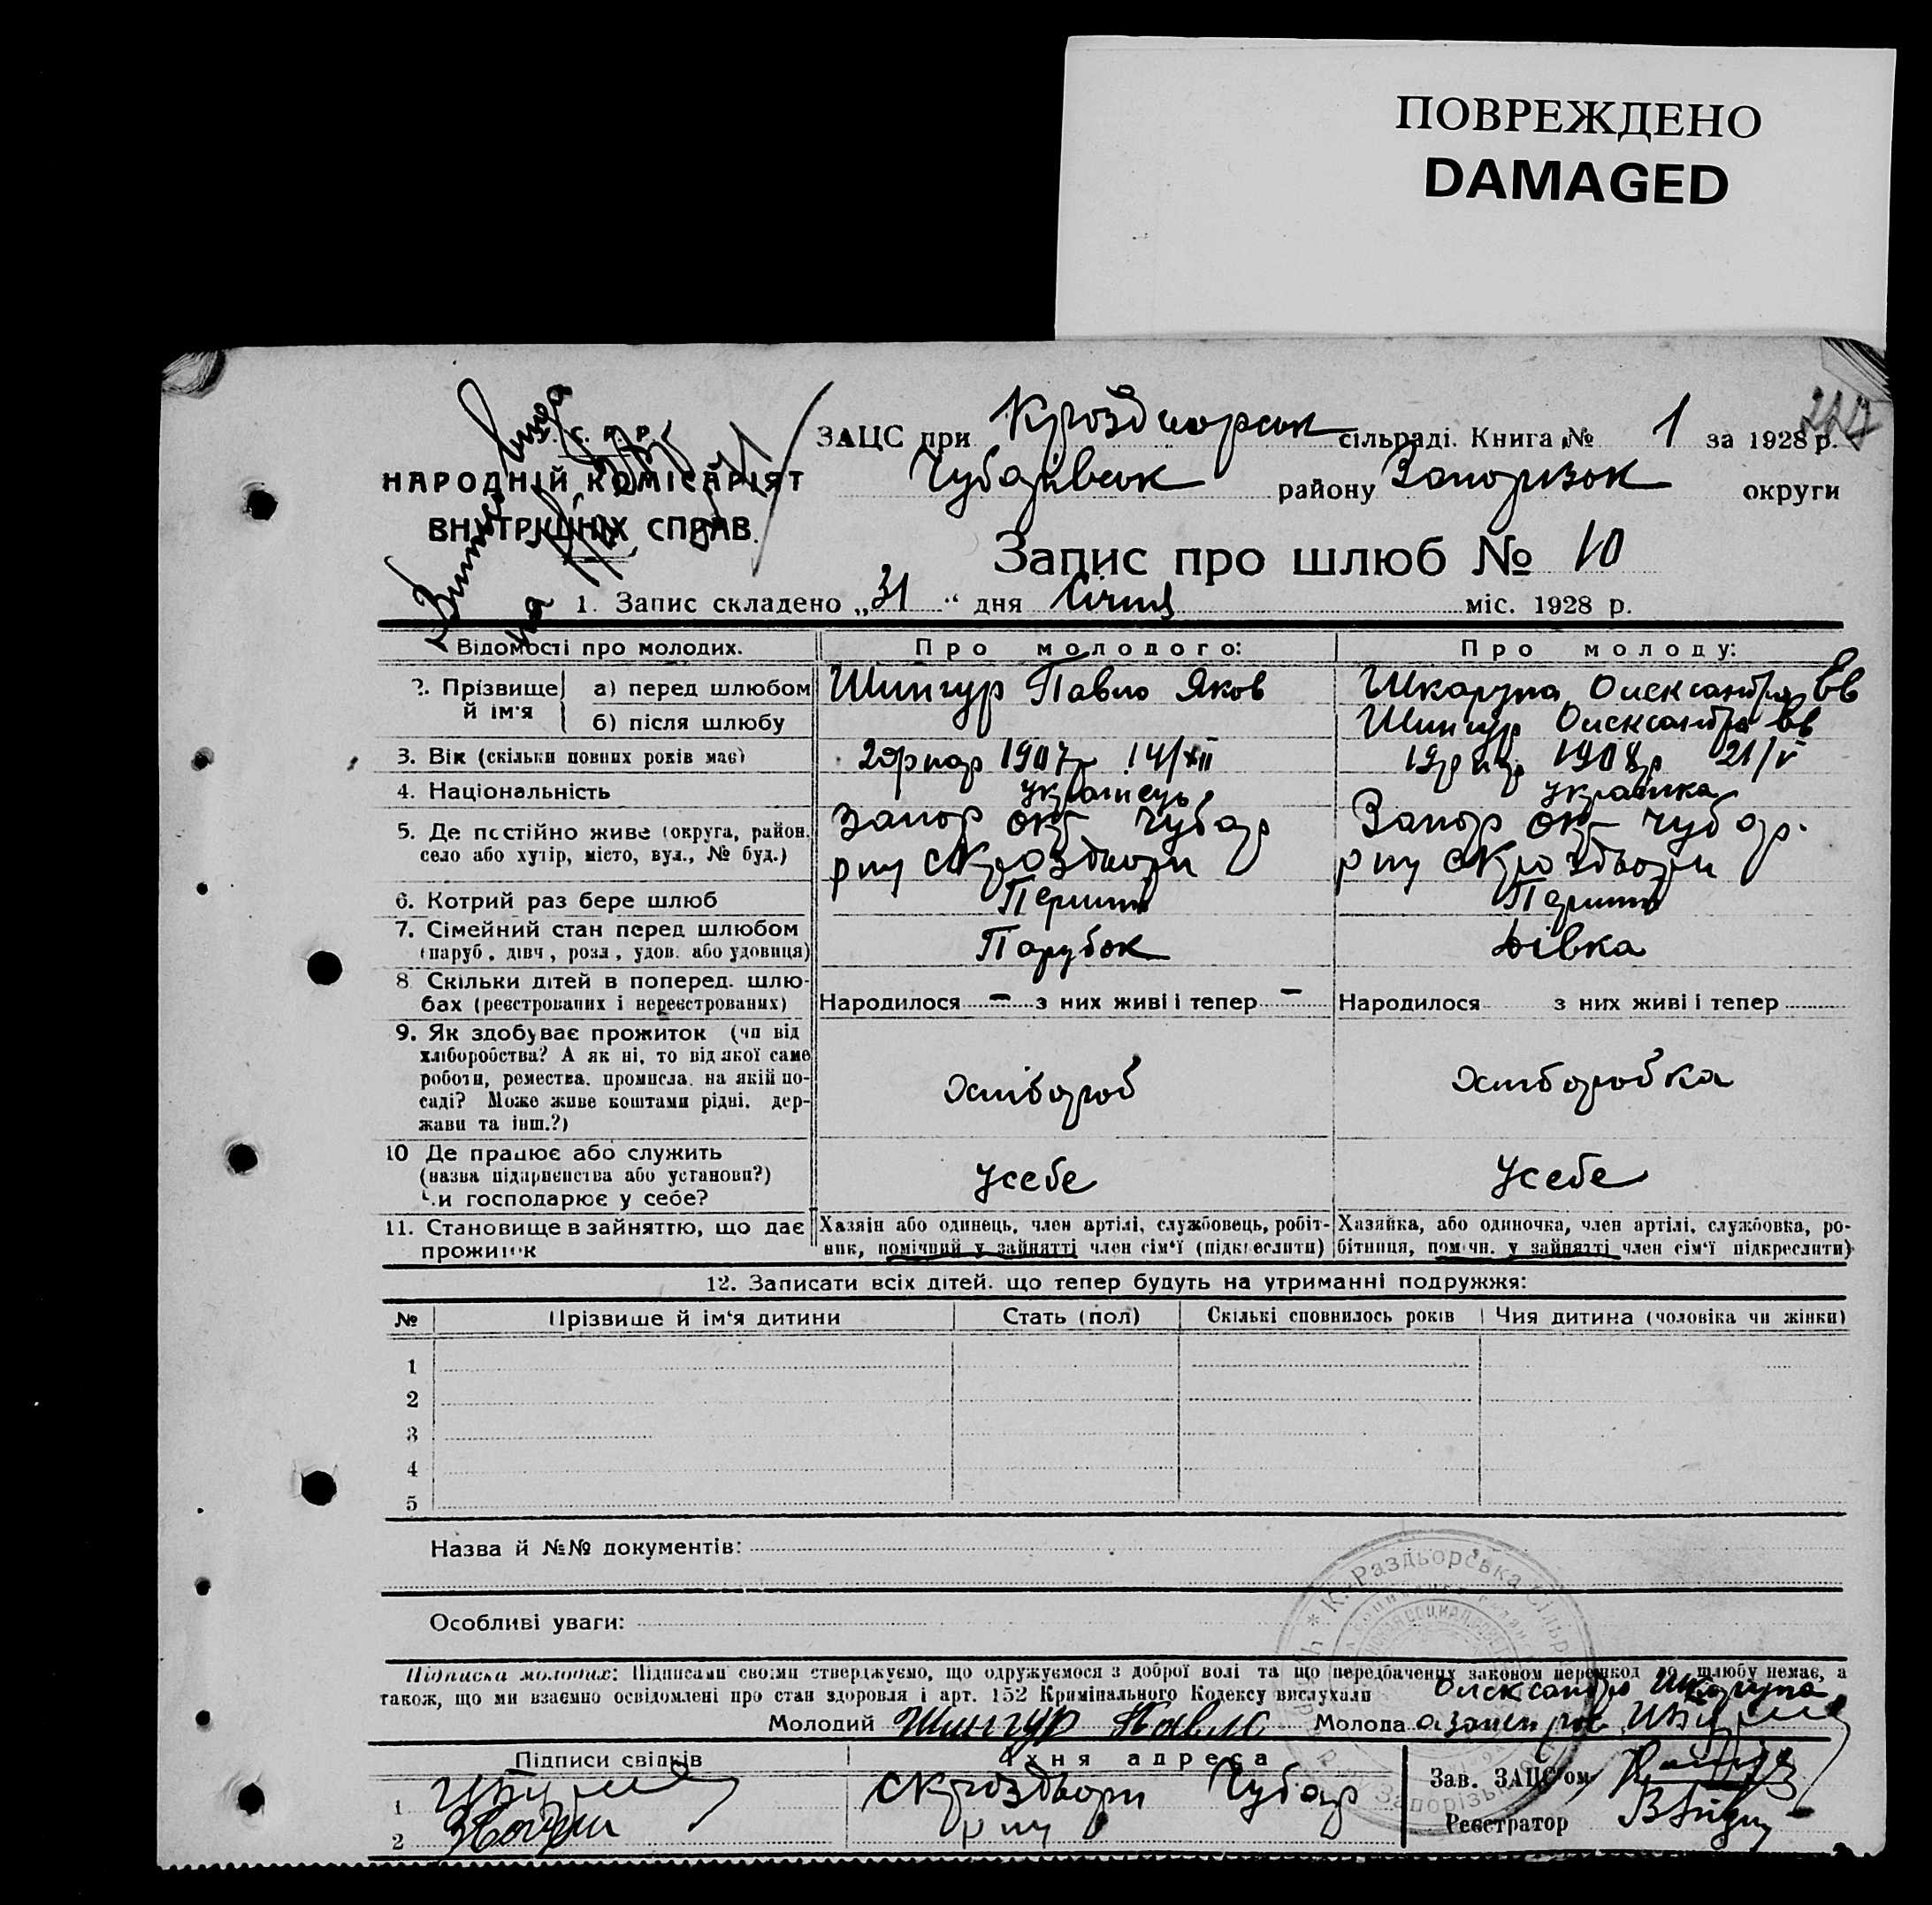 ПОВРЕЖДЕНО
DAMAGED
С. Р. Р.
НАРОДНІЙ КОМІСАРІЯТ
ВНУТРІШНІХ СПРАВ.
ЗАЦС при сільраді. Книга № 1 за 1928 р.
району Запорізок округи
Запис про шлюб № 10
1. Запис складено „31“ дня Січня міс. 1928 р.
Відомості про молодих. Про молодого: Про молоду:
2. Прізвище й ім'я а) перед шлюбом Шингур Павло Яков Шкарупа Олександра
б) після шлюбу Шингур Олександра
3. Вік (скільки повних років має) 1907р 14/XII 1908р 21/V
4. Національність Українець Українка
5. Де постійно живе (округа, район, Запор окр Чубар Запор окр Чубар.
село або хутір, місто, вул., № буд.) рну рну
6. Котрий раз бере шлюб Перший Перший
7. Сімейний стан перед шлюбом
(паруб., дівч., розл., удов. або удовиця) Парубок Дівка
8 Скільки дітей в поперед. шлю-
бах (реєстрованих і нереєстрованих) Народилося – з них живі і тепер – Народилося з них живі і тепер
9. Як здобуває прожиток (чи від
хліборобства? А як ні, то від якої саме
роботи, ремества, промисла, на якій по- Хлібороб Хліборобка
саді? Може живе коштами рідні, дер-
жави та інш.?)
10 Де працює або служить
(назва підприємства або установи?) Усебе Усебе
Чи господарює у себе?
11. Становище в зайняттю, що дає Хазяін або одинець, член артілі, службовець, робіт- Хазяйка, або одиночка, член артілі, службовка, ро-
прожиток ник, помічний у зайнятті член сім'ї (підкреслити) бітниця, помічн. у зайнятті член сім'ї підкреслити)
12. Записати всіх дітей, що тепер будуть на утриманні подружжя:
№ Прізвище й ім'я дитини Стать (пол) Скількі сповнилось років Чия дитина (чоловіка чи жінки)
1
2
3
4
5
Назва й №№ документів:
Особливі уваги:
Підписка молодих: Підписами своїми стверджуємо, що одружуємося з доброї волі та що передбачених законом перешкод до шлюбу немає, а
також, що ми взаємно освідомлені про стан здоровля і арт. 152 Кримінального Кодексу вислухали Олександра Шкарупа
Молодий Шингур Павло Молода
Підписи свідків Їхня адреса
1 Чубар Зав. ЗАЦС'ом
2 рну Реєстратор
К.-Раздьорська